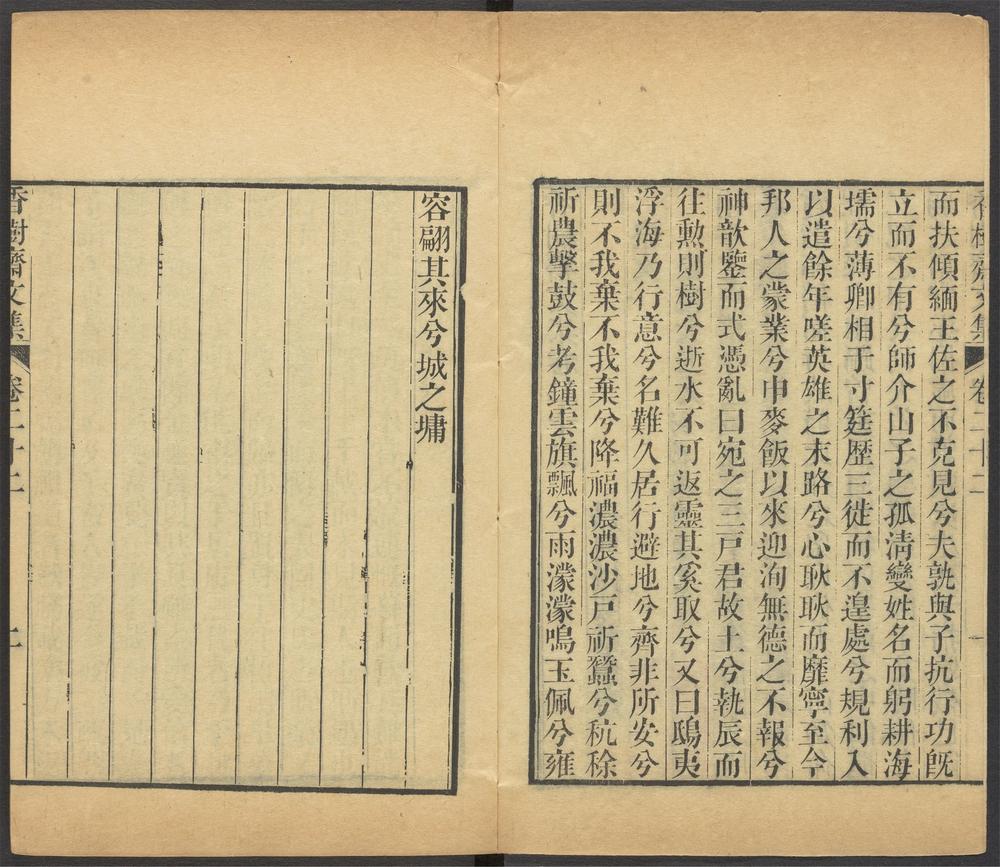 香樹齋文集 卷二十二 一
而扶傾緬王佐之不克見兮夫孰與子抗行功旣
立而不有兮師介山子之孤淸變姓名而躬耕海
壖兮薄卿相于寸筳歷三徙而不遑處兮規利入
以遣餘年嗟英雄之末路兮心耿耿而靡寧至今
邦人之蒙業兮申麥飯以來迎洵無德之不報兮
神歆鑒而式憑亂曰宛之三戸君故土兮執辰而
往勲則樹兮逝水不可返靈其奚取兮又曰鴟夷
浮海乃行意兮名難久居行避地兮齊非所安兮
則不我棄不我棄兮降福濃濃沙戸祈蠶兮秔稌
祈農擊鼓兮考鐘雲旗飄兮雨濛濛鳴玉佩兮雍
容翩其來兮城之墉
香樹齋文集 卷二十二